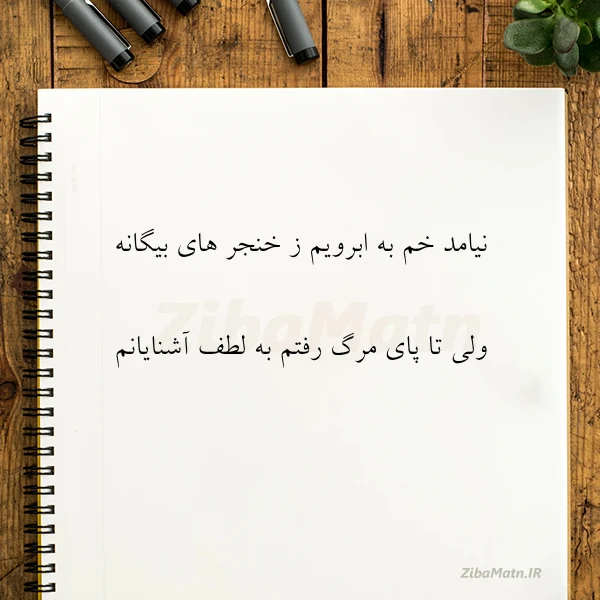 نیامد خم به ابرویم ز خنجر های بیگانه
ZibaMatn
ولی تا پای مرگ رفتم به لطف آشنایانم
ZibaMatn.IR